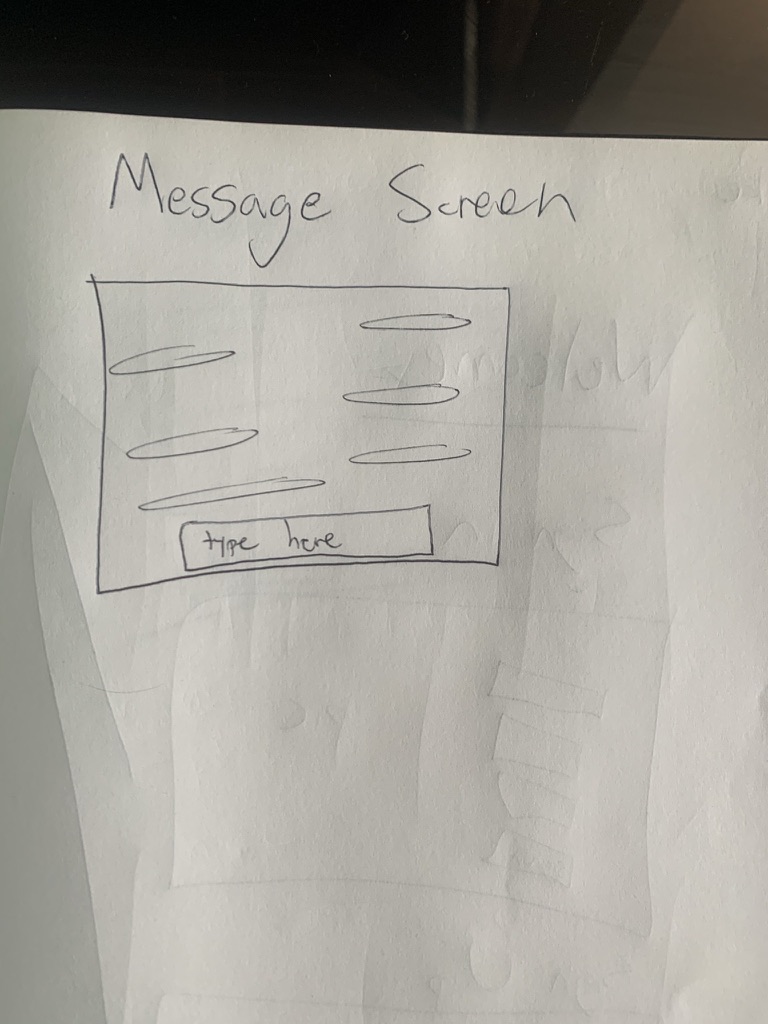 Message Screen
type here